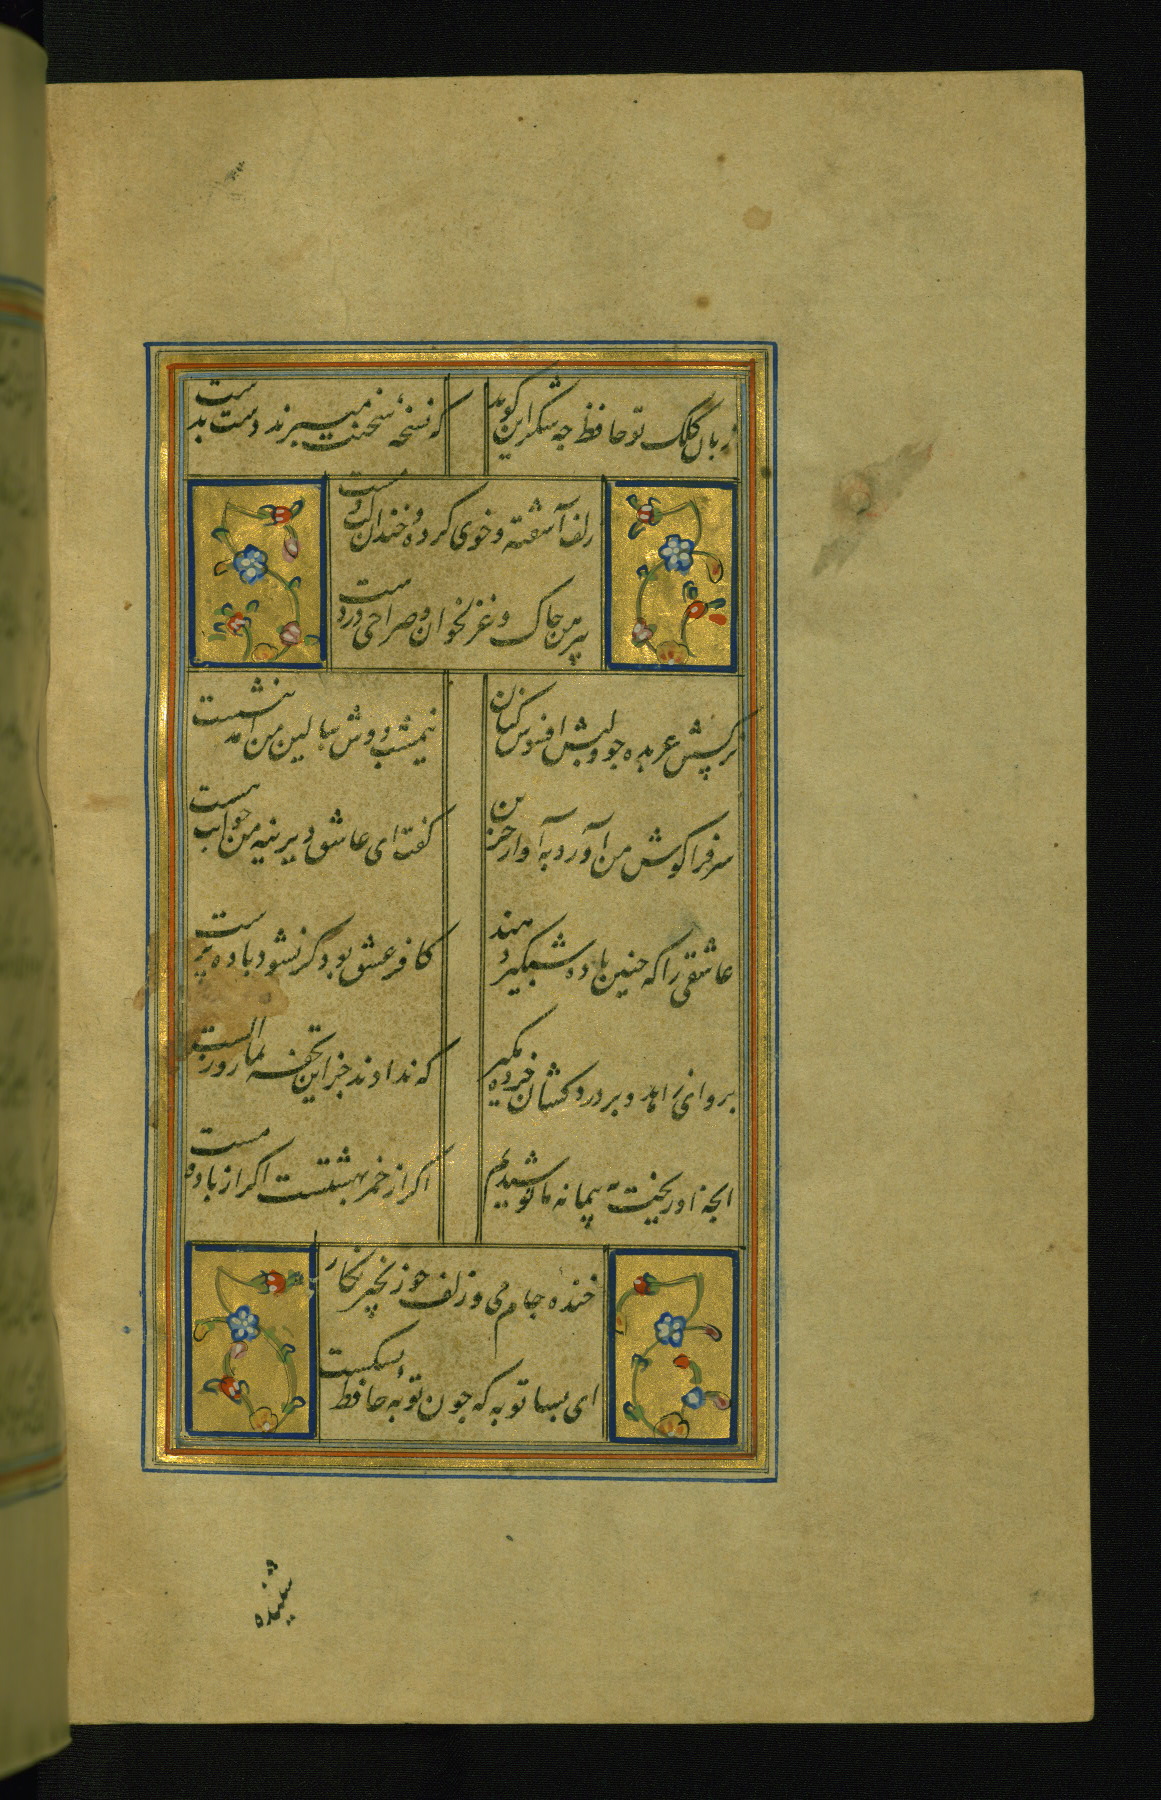 زبان کلک تو حافظ چه شکر این گوید
که نسخهٔ سخنت میبرند دست بدست
زلف آشفته و خوی کرده و خندان لب و مست
پیرهن چاک و غزلخوان و صراحی در دست
نرکسش عربده جو و لبش افسوس کنان
نیمشب دوش ببالین من آمد بنشست
سر فرا کوش من آورد به آواز حزین
کفت ای عاشق دیرینه من خوابت هست
عاشقی را که چنین باده شبکیر دهند
کافر عشق بود کر نشود باده پرست
برو ای زاهد و بر درد کشان خرده مکیر
که ندادند جز این تحفه بما روز الست
انچه او ریخت به پیمانه ما نوشیدیم
اکر از خمر بهشتست اکر از باده مست
خنده جام می و زلف چو زنجیر نکار
ای بسا توبه که چون توبه حافظ بشکست
شنیده